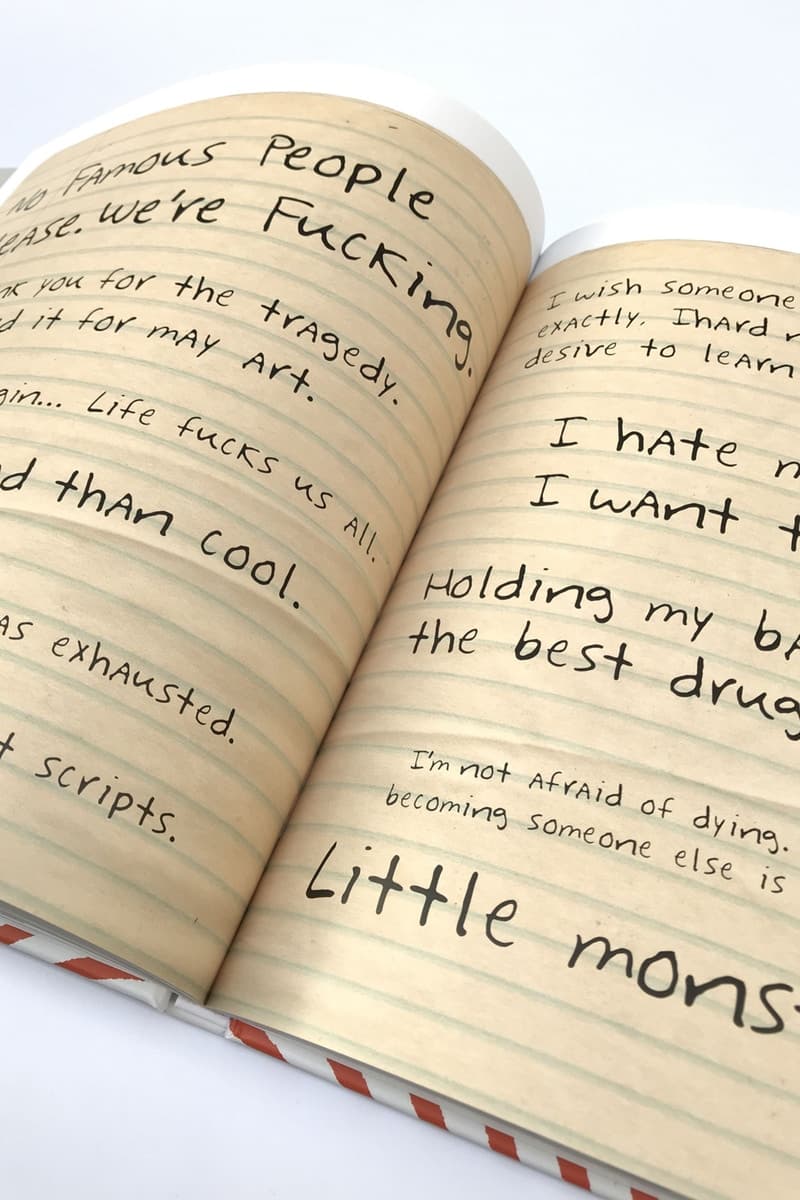 NO FAMOUS PEOPLE
EASE. WE'RE FUCKING.
NK YOU FOR THE TRAGEDY.
D IT FOR MAY ART.
GIN... LIFE FUCKS US ALL.
D THAN COOL.
AS EXHAUSTED.
T SCRIPTS.
I WISH SOMEONE
EXACTLY. IHARD
DESIVE TO LEARN
I HATE
I WANT
HOLDING MY BA
THE BEST DRUG
I'M NOT AFRAID OF DYING.
BECOMING SOMEONE ELSE IS
LITTLE MONS